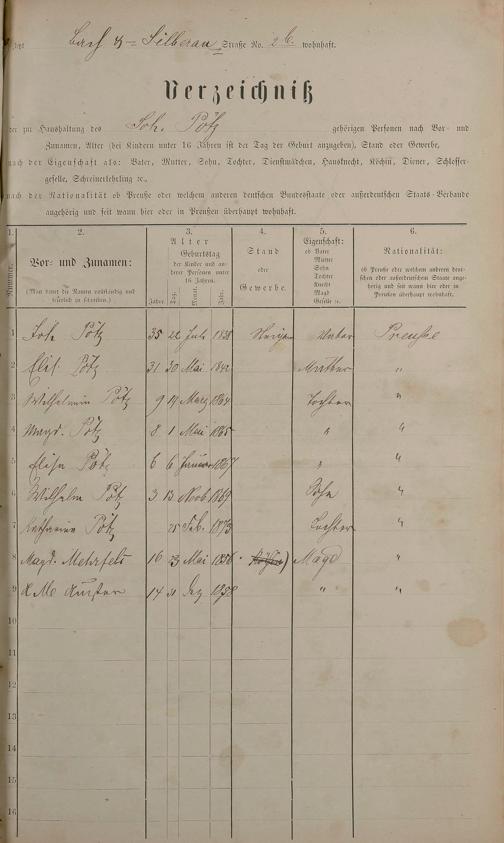 Bach & Silberau Straße No. 2 b. wohnhaft.
Verzeichniß
der zur Haushaltung des Joh. Pötz gehörigen Personen nach Vor- und
Zunamen, Alter (bei Kindern unter 16 Jahren ist der Tag der Geburt anzugeben), Stand oder Gewerbe,
nach der Eigenschaft als: Vater, Mutter, Sohn, Tochter, Dienstmädchen, Hausknecht, Köchin, Diener, Schlosser-
geselle, Schreinerlehrling ꝛc.,
nach der Nationalität ob Preuße oder welchem anderen deutschen Bundesstaate oder außerdeutschen Staats-Verbande
angehörig und seit wann hier oder in Preußen überhaupt wohnhaft.
1. 2. 3. 4. 5. 6.
Nummer. Vor- und Zunamen: Alter Stand oder Gewerbe. Eigenschaft: Nationalität:
(Man bittet die Namen vollständig und leserlich zu schreiben.)
Geburtstag der Kinder und anderer Personen unter 16 Jahren.
Jahre. Tag. Monat. Jahr.
ob Vater Mutter Sohn Tochter Knecht Magd Geselle ꝛc.
ob Preuße oder welchem anderen deutschen oder außerdeutschen Staate angehörig und seit wann hier oder in Preußen überhaupt wohnhaft.
1 Joh. Pötz 35 22 Juli 1838 Vater Preuße
2 Elis. Pötz 31 30 Mai 1842 Mutter "
3 Wilhelmin Pötz 9 14 März 1864 Tochter "
4 Magd. Pötz 8 1 Mai 1865 " "
5 Elisa Pötz 6 6 Januar 1867 " "
6 Wilhelm Pötz 3 13 Novb. 1869 Sohn "
7 Katharina Pötz 25 Feb. 1873 Tochter "
8 Magd. Mehrfels 16 23 Mai 1856 Magd "
9 14 31 Dez 1858 " "
10
11
12
13
14
15
16